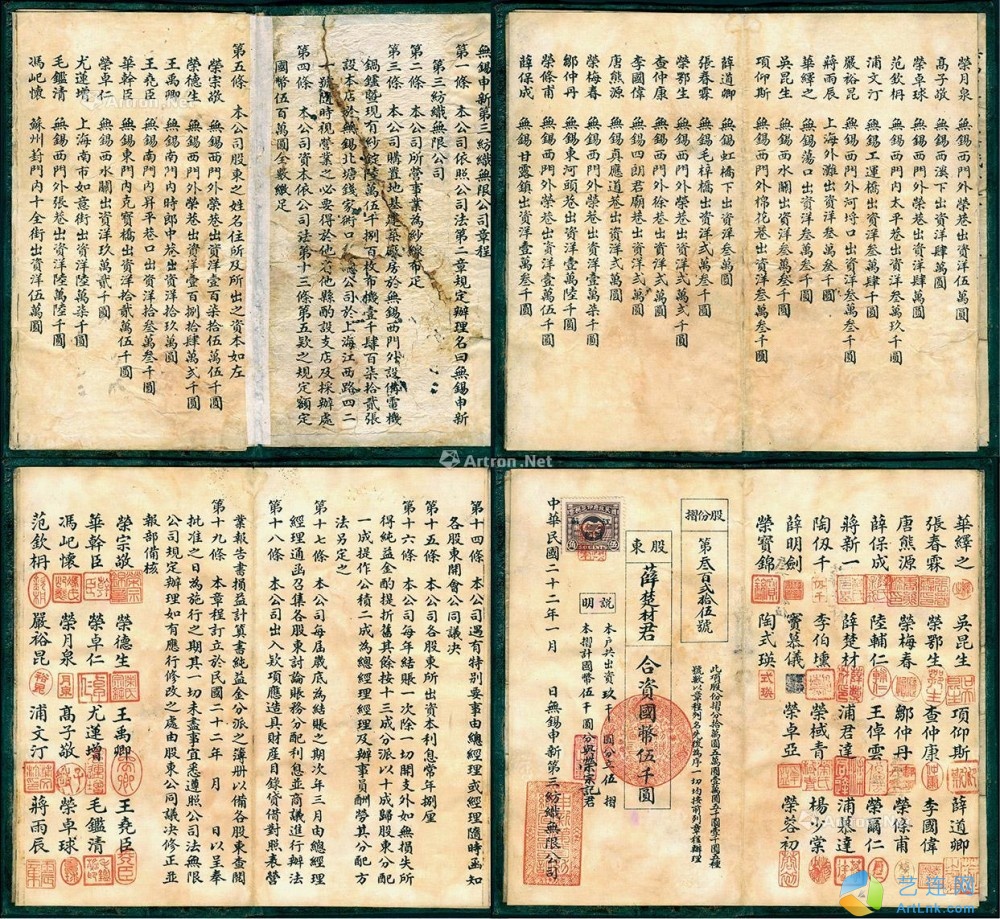 無錫申新第三紡織無限公司章程
第一條　本公司依照公司法第二章規定辦理名曰無錫申新
第三紡織無限公司
第二條　本公司所營事業為紗線布疋
第三條　本公司購置地基建築廠房於無錫西門外設備電機
鍋鑪暨現有紗錠陸萬伍仟捌百枚布機壹千肆百柒拾貳張
設本店於無錫北塘錢家衖口
公司於上海江西路四二
一號隨時視營業之必要得於他
他縣酌設支店及採辦處
第四條　本公司資本依公司法第十三條第五欵之規定額定
國幣伍百萬圓全數繳足
第五條　本公司股東之姓名住所及所出之資本如左
榮宗敬　無錫西門外榮巷出資洋壹百柒拾伍萬伍千圓
榮德生　無錫西門外榮巷出資洋壹百捌拾肆萬弍千圓
王禹卿　無錫南門內時郎中巷出資洋拾玖萬圓
王堯臣　無錫南門內昇平巷口出資洋拾叁萬叁千圓
華幹臣　無錫東門內克寶橋出資洋拾貳萬伍千圓
榮卓仁　無錫西水關出資洋玖萬貳千圓
尤運增　上海南市如意街出資洋陸萬柒千圓
毛鑑清　無錫西門外張巷出資洋陸萬陸千圓
馮屺懷　蘇州封門內十全街出資洋伍萬圓
榮月泉　無錫西門外榮巷出資洋伍萬圓
高子敬　無錫西溪下出資洋肆萬圓
榮卓球　無錫西門外榮巷出資洋肆萬圓
范欽枬　無錫西門內太平巷出資洋叁萬玖千圓
浦文汀　無錫工運橋出資洋肆千圓
嚴裕昆　無錫西門外河埒口出資洋叁萬圓
蔣雨辰　上海外灘出資洋叁萬圓
華繹之　無錫蕩口出資洋叁萬叁千圓
吳昆生　無錫西水關出資洋叁萬圓
項仰斯　無錫西門外棉花巷出資洋叁萬叁千圓
薛道卿　無錫虹橋下出資洋叁萬圓
張春霖　無錫毛梓橋出資洋弍萬叁千圓
榮鄂生　無錫西門外榮巷出資洋弍萬弍千圓
查仲康　無錫西門外徐巷出資洋弍萬圓
李國偉　無錫四郎君廟巷出資洋弍萬圓
唐熊源　無錫真應道巷出資洋弍萬圓
榮梅春　無錫西門外榮巷出資洋壹萬柒千圓
鄒仲丹　無錫東河頭巷出資洋壹萬陸千圓
榮條甫　無錫西門外榮巷出資洋壹萬伍千圓
薛保成　無錫甘露鎮出資洋壹萬叁千圓
第十四條　本公司遇有特別要事由總經理或經理隨時函知
各股東開會公同議決
第十五條　本公司各股東所出資本利息常年捌厘
第十六條　本公司每年結賬一次除一切開支外如無損失所
得純益金酌提折舊其餘按十三成分派以十成歸股東分配
一成提作公積二成為總經理經理及辦事員酬勞其分配方
法另定之
第十七條　本公司每屆歲底為結賬之期次年三月由總經理
經理通函召集各股東討論賬務分配利息並商議進行辦法
第十八條　本公司出入欵項應造具財產目錄貸借對照表營
業報告書損益計算書純益金分派之簿册以備各股東查閱
第十九條　本章程訂立於民國二十二年　月　日以呈奉
批准之日為施行之期其一切未盡事宜悉遵照公司法無限
公司規定辦理如有應行修改之處由股東公同議決修正並
報部備核
榮宗敬　榮德生　王禹卿　王堯臣
華幹臣　榮卓仁　尤運增　毛鑑清
馮屺懷　榮月泉　高子敬　榮卓球
范欽枬　嚴裕昆　浦文汀　蔣雨辰
華繹之　吳昆生　項仰斯　薛道卿
張春霖　榮鄂生　查仲康　李國偉
唐熊源　榮梅春　鄒仲丹　榮條甫
薛保成　陸輔仁　王倬雲　榮爾仁
蔣新一　薛楚材　浦君達　浦慕達
陶伋千　李伯壎　榮棫青　楊少棠
薛明劍　竇慕儀　榮卓亞　榮蓉初
榮寶錦　陶式瑛
股份摺
第叁百弍拾伍號
此項股份摺分拾萬圓五萬圓壹萬圓五千圓壹千圓五種
號數以章程列名先後為序一切均按前列章程辦理
股東　薛楚材君　合資國幣伍千圓
說明
本戶共出資玖千圓分立伍摺
本摺計國幣伍千圓分與榮宗記君
中華民國二十二年一月　日無錫申新第三紡織無限公司
Artron.Net
Artron.Net
艺连网
ArtLnk.com